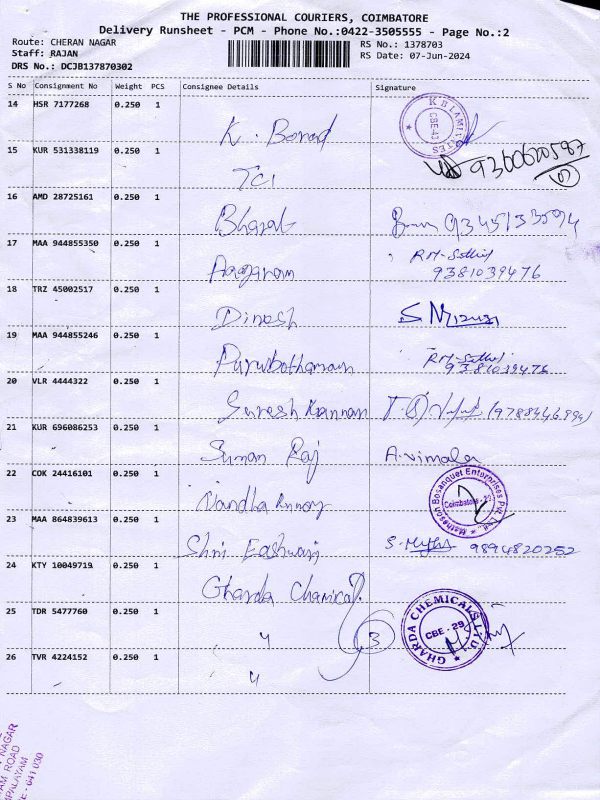 THE PROFESSIONAL COURIERS, COIMBATORE
Delivery Runsheet - PCM - Phone No.:0422-3505555 - Page No.:2
Route: CHERAN NAGAR
RS No.: 1378703
Staff: RAJAN
RS Date: 07-Jun-2024
DRS No.: DCJB137870302
S No Consignment No Weight PCS Consignee Details Signature
14 HSR 7177268 0.250 1
CBE-43
15 KUR 531338119 0.250 1
TCI
16 AMD 28725161 0.250 1
Bharat
17 MAA 944855350 0.250 1
9381039476
18 TRZ 45002517 0.250 1
Dinesh
19 MAA 944855246 0.250 1
Purushothaman
9381039476
20 VLR 4444322 0.250 1
Suresh Kannan
21 KUR 696086253 0.250 1
Suman Raj A. Vimala
22 COK 24416101 0.250 1
Matheson Bosanquet Enterprises Pvt. Ltd.
23 MAA 864839613 0.250 1
Shri Eashwari 9894820252
24 KTY 10049719 0.250 1
Gharda Chemical
25 TDR 5477760 0.250 1
3
GHARDA CHEMICALS LTD.
CBE - 29
26 TVR 4224152 0.250 1
NAGAR
ROAD
641 030